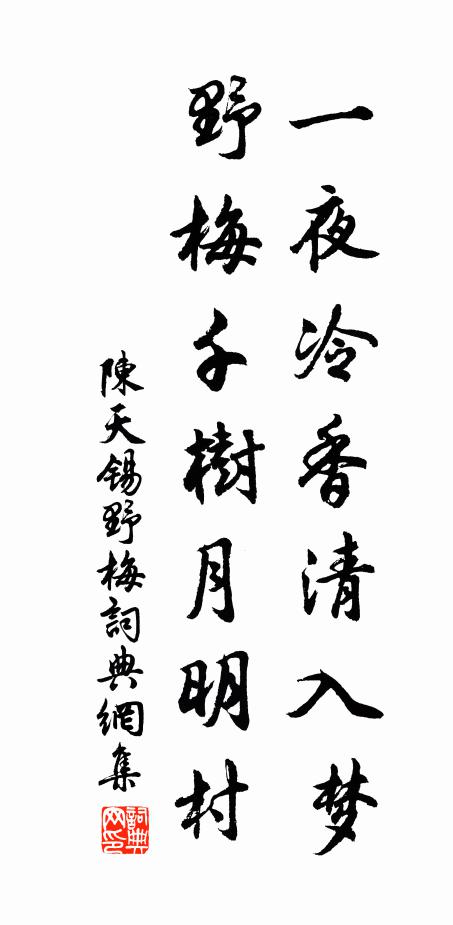 一夜冷香清入梦
野梅千樹月明村
陳天錫野梅詞典網集
詞典网印